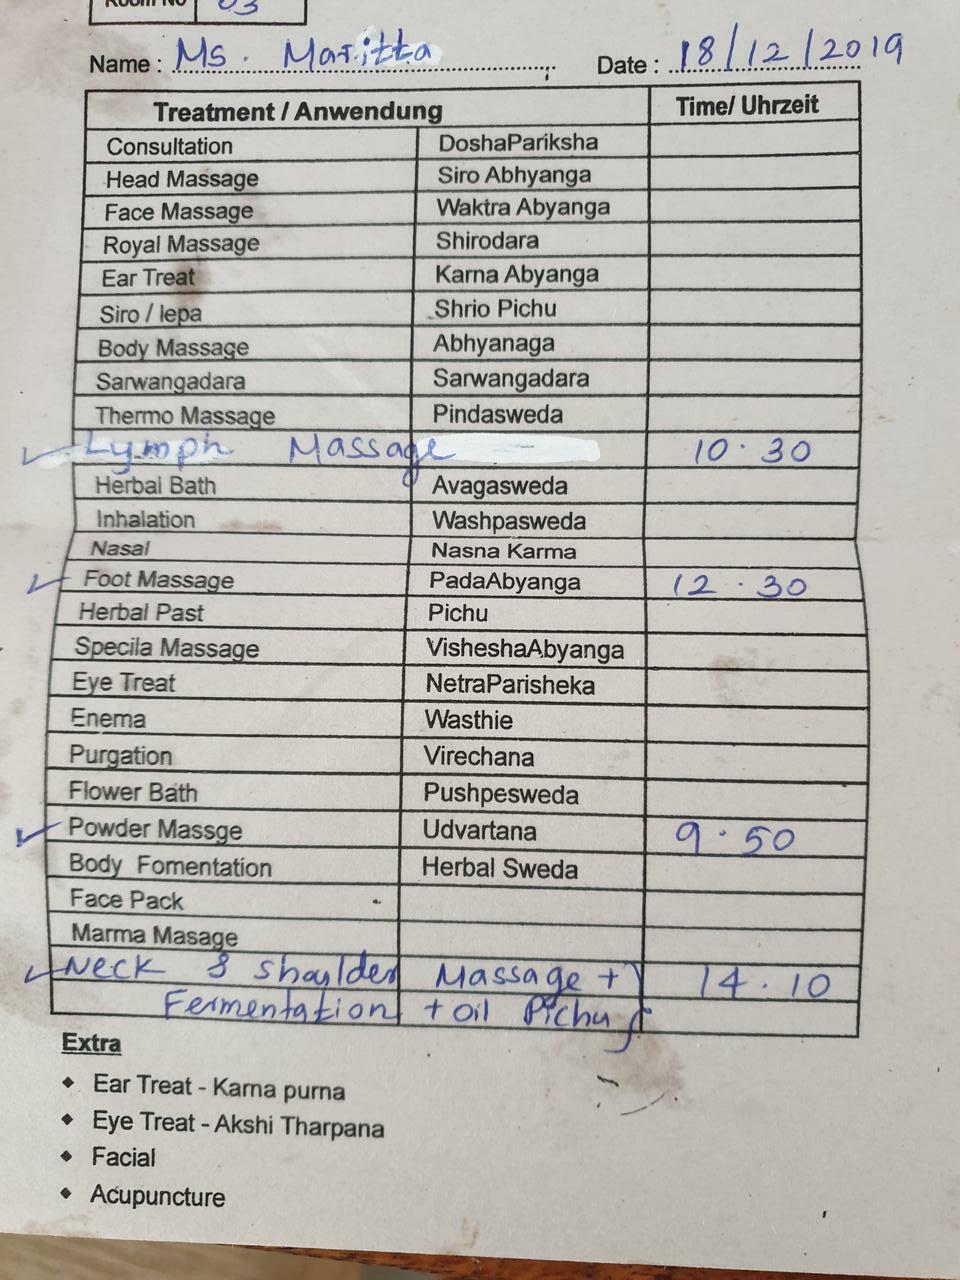 Room No 03
Name : Ms. Maritta Date : 18/12/2019
Treatment / Anwendung Time/ Uhrzeit
Consultation DoshaPariksha
Head Massage Siro Abhyanga
Face Massage Waktra Abyanga
Royal Massage Shirodara
Ear Treat Karna Abyanga
Siro / lepa Shrio Pichu
Body Massage Abhyanaga
Sarwangadara Sarwangadara
Thermo Massage Pindasweda
Lymph Massage 10.30
Herbal Bath Avagasweda
Inhalation Washpasweda
Nasal Nasna Karma
Foot Massage PadaAbyanga 12.30
Herbal Past Pichu
Specila Massage VisheshaAbyanga
Eye Treat NetraParisheka
Enema Wasthie
Purgation Virechana
Flower Bath Pushpesweda
Powder Massge Udvartana 9.50
Body Fomentation Herbal Sweda
Face Pack
Marma Masage
Neck & shoulder Massage + 14.10
Fermentation + oil Pichu
Extra
Ear Treat - Karna purna
Eye Treat - Akshi Tharpana
Facial
Acupuncture